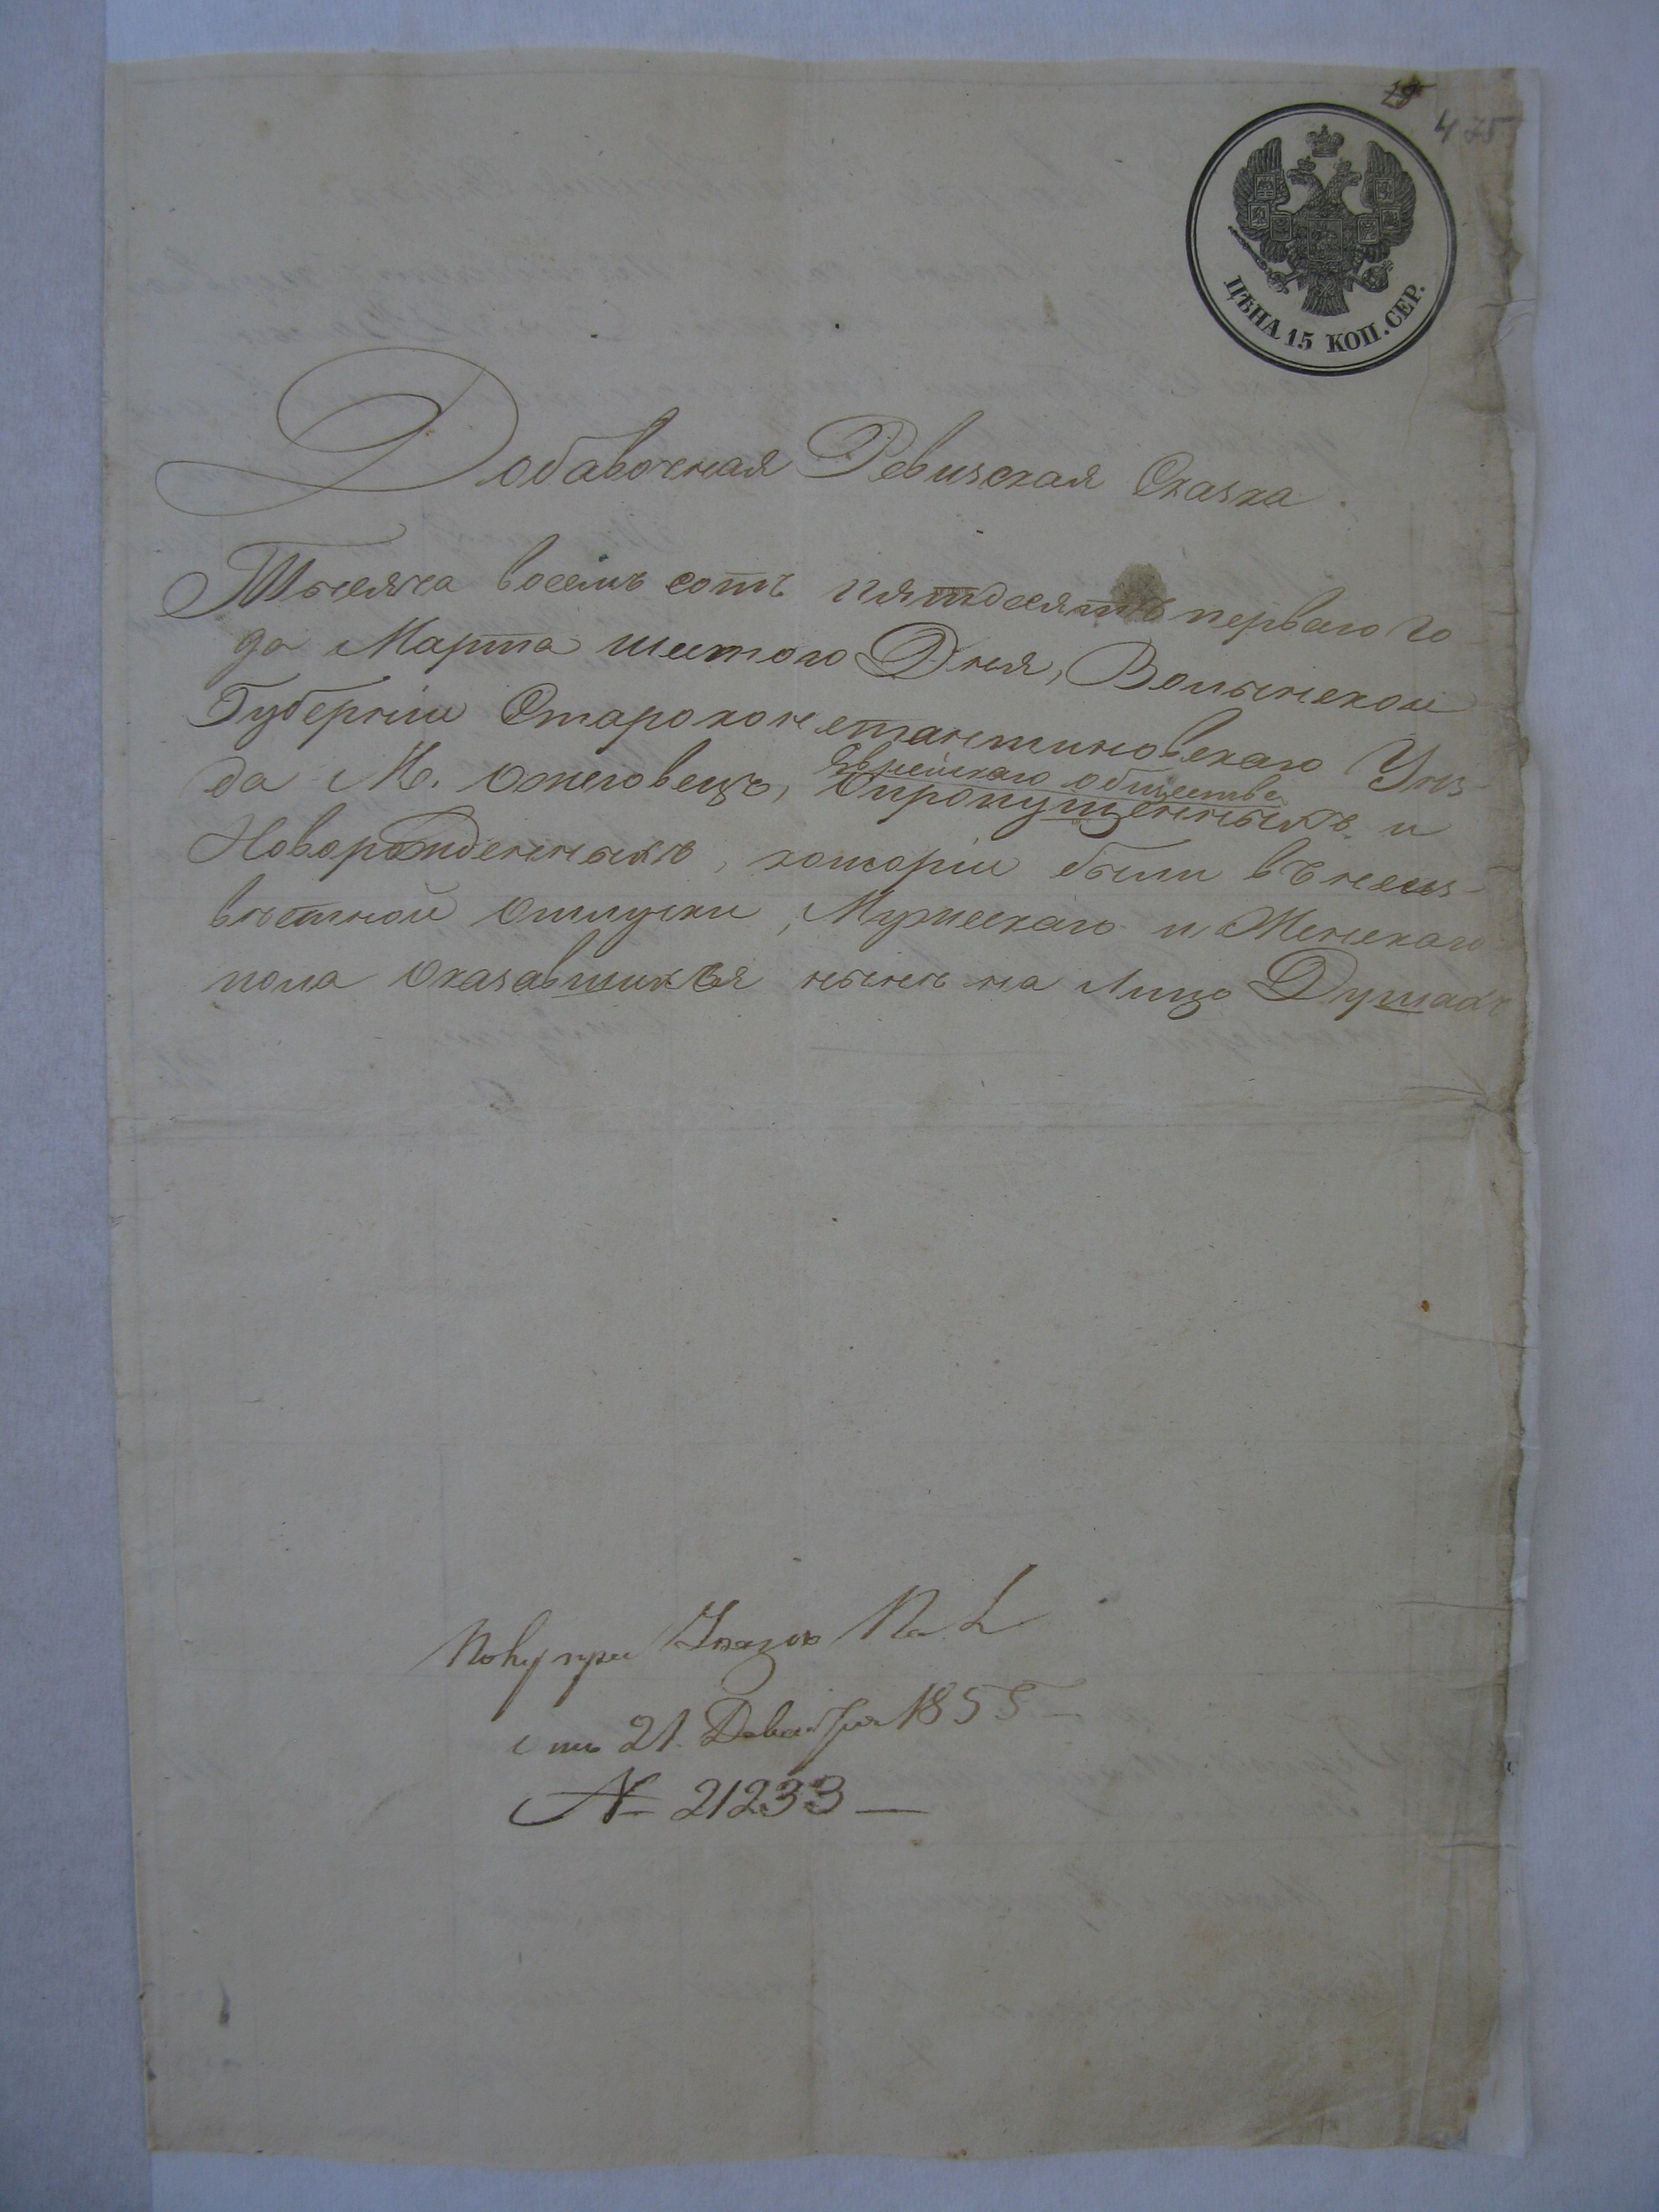 475
ЦѢНА 15 КОП. СЕР.
Добавочная Ревизская Сказка.
Тысяча восемь сотъ пятдесятъ перваго го
да Марта шестого Дня, Волынской
Губерніи Староконстантиновскаго Уѣз
да М. Ожеговецъ, Еврейскаго общества
О пропущенныхъ и
Новорожденныхъ, которіи были въ неиз-
вѣстной Отлучки, Мужескаго и Женскаго
пола Оказавшихся нынѣ на Лицо Душахъ
при Указѣ
отъ 21. Декабря 1855
№ 21233